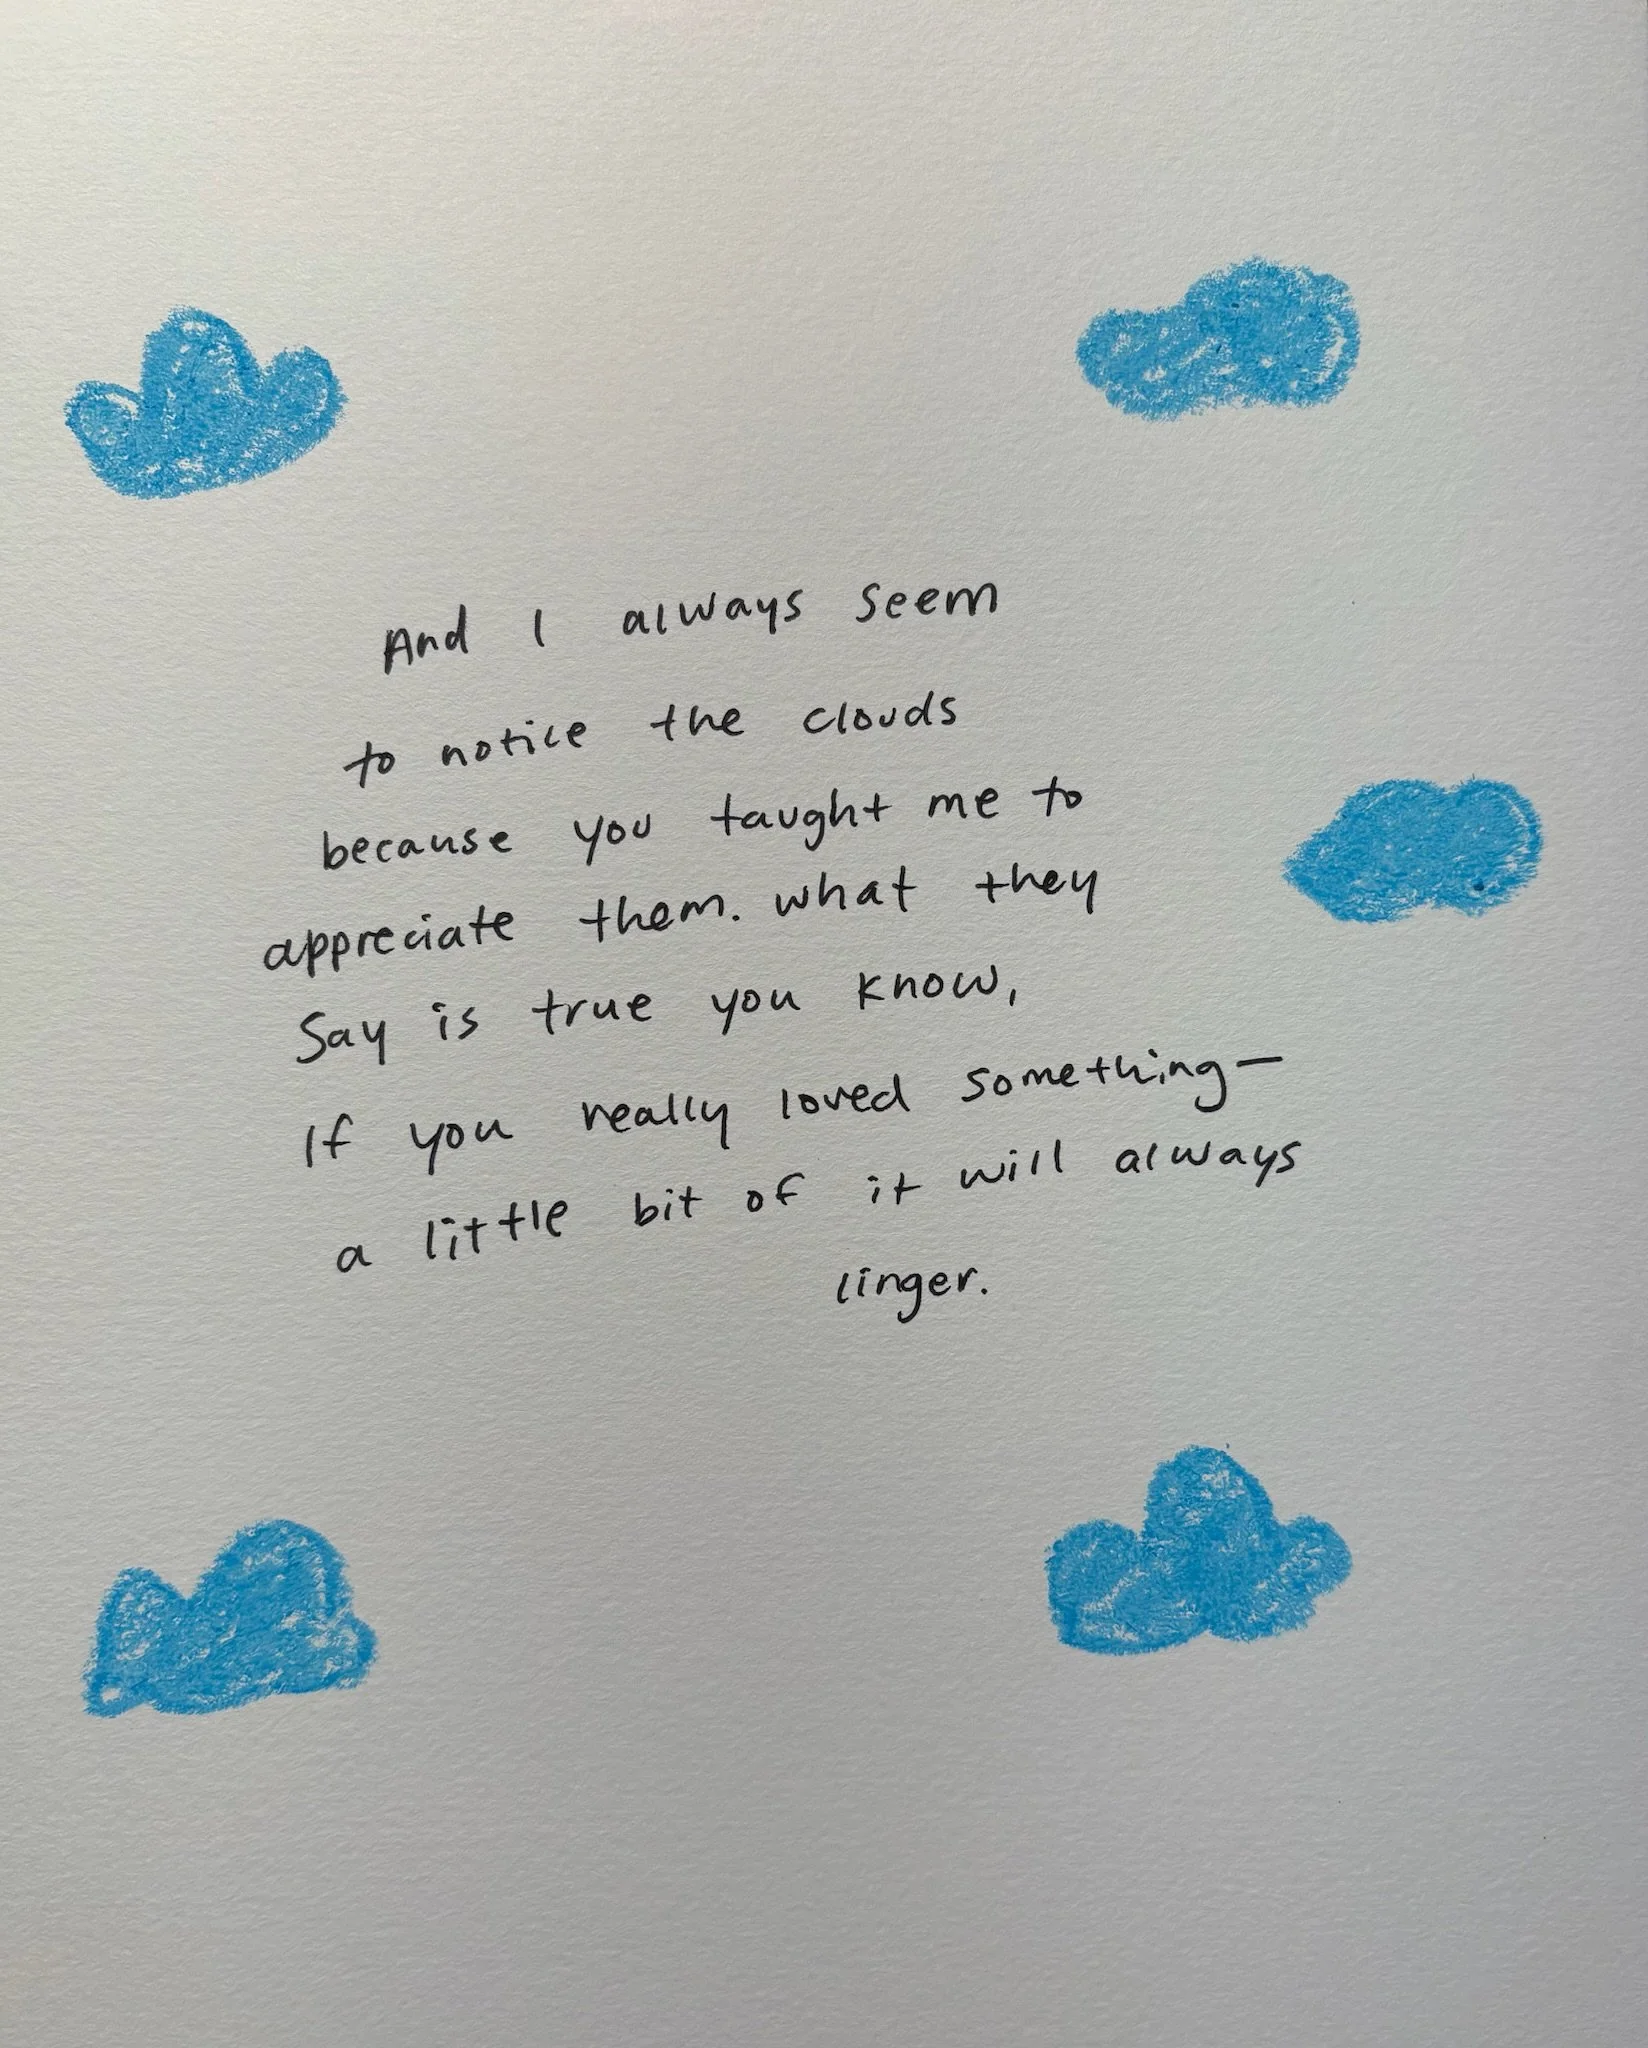 And I always seem
to notice the clouds
because you taught me to
appreciate them. what they
Say is true you know,
If you really loved something—
a little bit of it will always
linger.